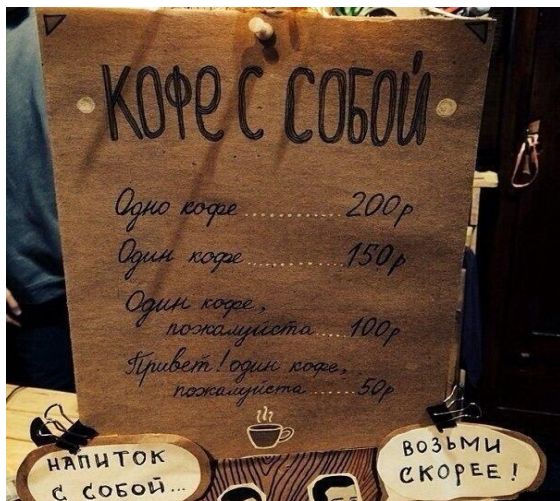 КОФЕ С СОБОЙ
Одно кофе ............. 200р
Один кофе ............. 150р
Один кофе,
пожалуйста .... 100р
Привет! один кофе,
пожалуйста ..... 50р
НАПИТОК
С СОБОЙ...
ВОЗЬМИ
СКОРЕЕ!